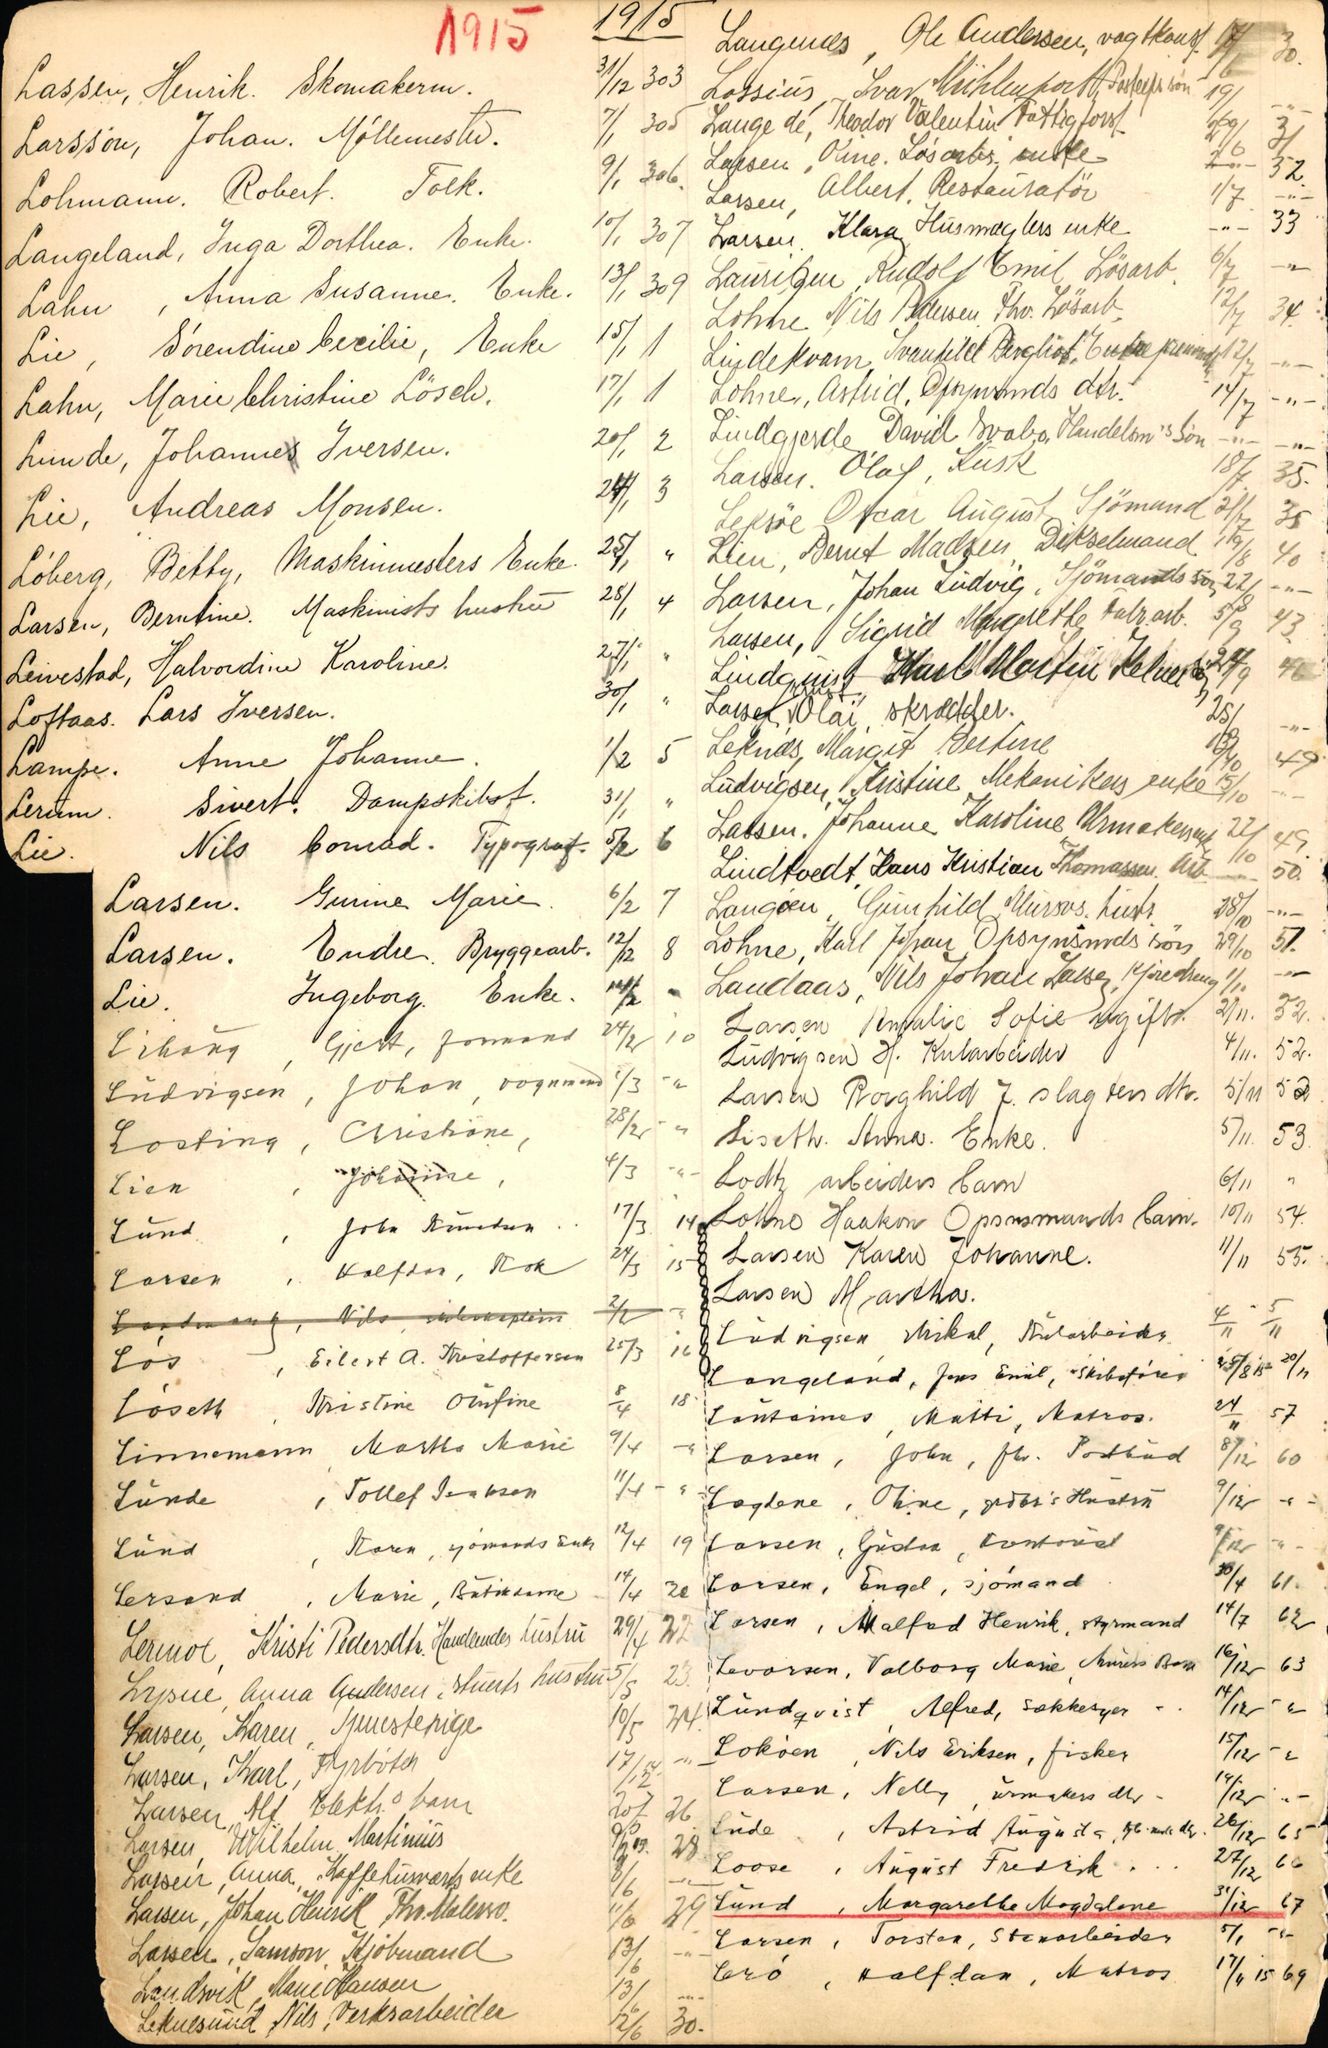 1915
1915
Lassen, Henrik. Skomakerm. 31/12 303
Larsson, Johan. Möllemester. 7/1 305
Lohmann. Robert. Tolk. 9/1 306.
Langeland, Inga Dorthea. Enke. 10/1 307
Lahn, Anna Susanne. Enke. 13/1 309
Lie, Sörendine Cecilie, Enke 15/1 1
Lahn, Marie Christine Lösch. 17/1 1
Lunde, Johannes Iversen. 20/1 2
Lie, Andreas Monsen. 24/1 3
Löberg, Betty, Maskinmesters Enke. 25/1 "
Larsen, Berntine. Maskinists hustru 28/1 4
Leivestad, Halvordine Karoline. 27/1 "
Loftaas. Lars Iversen. 30/1 "
Lampe. Anne Johanne. 1/2 5
Lerum. Sivert. Dampskibsf. 31/1 "
Lie. Nils Conrad. Typograf. 5/2 6
Larsen. Gurine Marie. 6/2 7
Larsen. Endre. Bryggearb. 12/2 8
Lie. Ingeborg. Enke. 14/2 "
Gjert, formand 24/2 10
Ludvigsen, Johan, vognmand 1/3 "
Losting, Christiane, 28/2 "
Lien, Johanne, 4/3 "
Lund, John Knudsen .. 17/3 14
Larsen, Halfdan, Kok 24/3 15
Nils 2/2 "
Lös, Eilert A. Kristoffersen 25/3 16
Löseth, Kristine Olufine 8/4 18
Linnemann, Martha Marie 9/4 "
Lunde, Tollef Isaksen 11/4 "
Lund, Karen, sjömands Enke 12/4 19
Lersand, Marie, Butikdame 14/4 20
Lermoe, Kristi Pedersdtr. Handlendes hustru 29/4 22
Lysne, Anna Andersen, stuerts hustru 5/5 23.
Larsen, Karen, Tjenestepige 10/5 24.
Larsen, Karl, Fyrböter 17/12 14 "
Larsen, Alf. Elektr. barn 20/5 26
Larsen, Wilhelm Martinius 28
Larsen, Anna, Kaffehusværts enke 8/6 "
Larsen, Johan Henrik, Fhv. Malersv. 11/6 29
Larsen, Samson, Kjöbmand 13/6 "
Landsvik, Marie Hansen 13/6 "
Leknesund, Nils, Verksarbeider 12/6 30.
Langenes, Ole Andersen, vagtkonst. 30.
Lossius, Ivar Mühlenport, 19/
Lange de, Theodor Valentin Fattigforst. 31
Larsen, Oline. Lösarb. enke 32
Larsen, Albert. Restauratör 1/7 "
Larsen. Klara, Husmæglers enke " 33
Lauritzen, Rudolf Emil, Lösarb. 6/7 "
Lohne, Nils Pedersen. Fhv. Lösarb. 12/7 34.
Lindekvam, Svanhild Bergliot, 12/7 "
Lohne, Astrid, Opsynsmds dtr. 14/7 "
Lindgjerde, David Svaba, Handelsm's Sön " "
Larsen. Olaf, Kusk 18/7 35.
Leksöe Oscar August Sjömand 21/7 35
Lien, Bernt Madsen, Dikselmand 19/8 40
Larsen, Johan Ludvig, Sjömands sön 22/8 "
Larsen, Sigrid Margrethe Fabr.arb. 5/9 43
Lindquist Karl Martin 24/9 46
Larsen, Olai, skrædder. 25/ "
Leknes, Margit Bertine 49
Ludvigsen, Kristine Mekanikers enke 15/10 "
Larsen. Johanne Karoline Urmakers 22/10 49.
Lindtvedt, Hans Kristian Thomassen. Arb. " 50.
Langöen, Gunhild, Mursvs. hustr. 28/10 "
Lohne, Karl Johan Opsynsmds sön 29/10 51.
Landaas, Nils Johan Lassen, 1/10 "
Larsen Amalie Sofie ugift. 2/11. 52.
Ludvigsen H. Kularbeider 4/11. 52.
Larsen Borghild J. slagters dtr. 5/11 52
Liseth. Anna. Enke. 5/11. 53.
Lodtz arbeiders barn 6/11 "
Lohne Haakon Opsnsmands barn. 10/11 54.
Larsen Karen Johanne. 11/11 55.
Larsen Martha.
Ludvigsen Mikal, Kularbeider 4/11 5/11
Langeland, Jens Emil, Skibsförer 25/8 15 20/11
Lautaines, Matti, Matros. 24/11 57
Larsen, John, fhv. Postbud 8/12 60
Lægdene, Oline, Hustru 9/12 "
Larsen, Gustav, Kontorist 9/12 "
Larsen, Engel, sjömand 30/4 61.
Larsen, Malfred Henrik, styrmand 14/7 62
Levorsen, Valborg Marie, Murers Barn 16/12 63
Lundqvist, Alfred, Sækkesyer 14/12 "
Loköen, Nils Eriksen, fisker 15/12 "
Larsen, Nelly, urmakers dtr. 19/12 "
Lude, Astrid Augusta, dtr. 26/12 65
Loose, August Fredrik ... 27/12 66
Lund, Margarethe Magdalene 31/12 67
Larsen, Torsten, Stenarbeider 5/1 "
Lerö, Halfdan, Matros 17/11 15 69